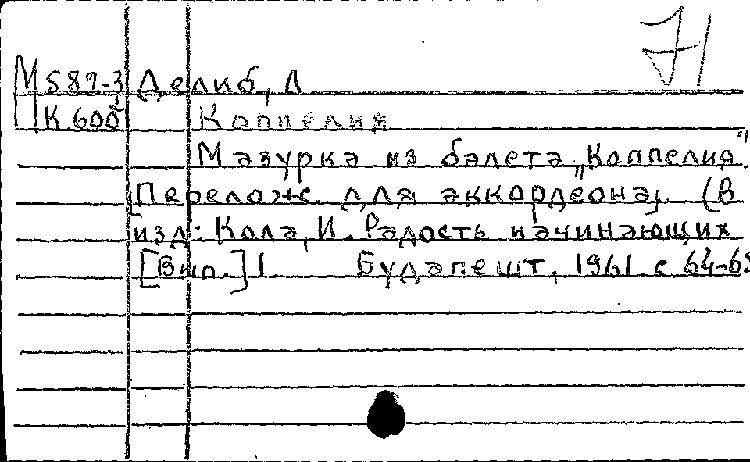 71
М 587-3 Делиб, Л
К 600 Коппелия
Мазурка из балета „Коппелия"
[Перелож. для аккордеона]. (В
изд: Кола, И. Радость начинающих
[Вып.] 1. Будапешт, 1961. с 64-65